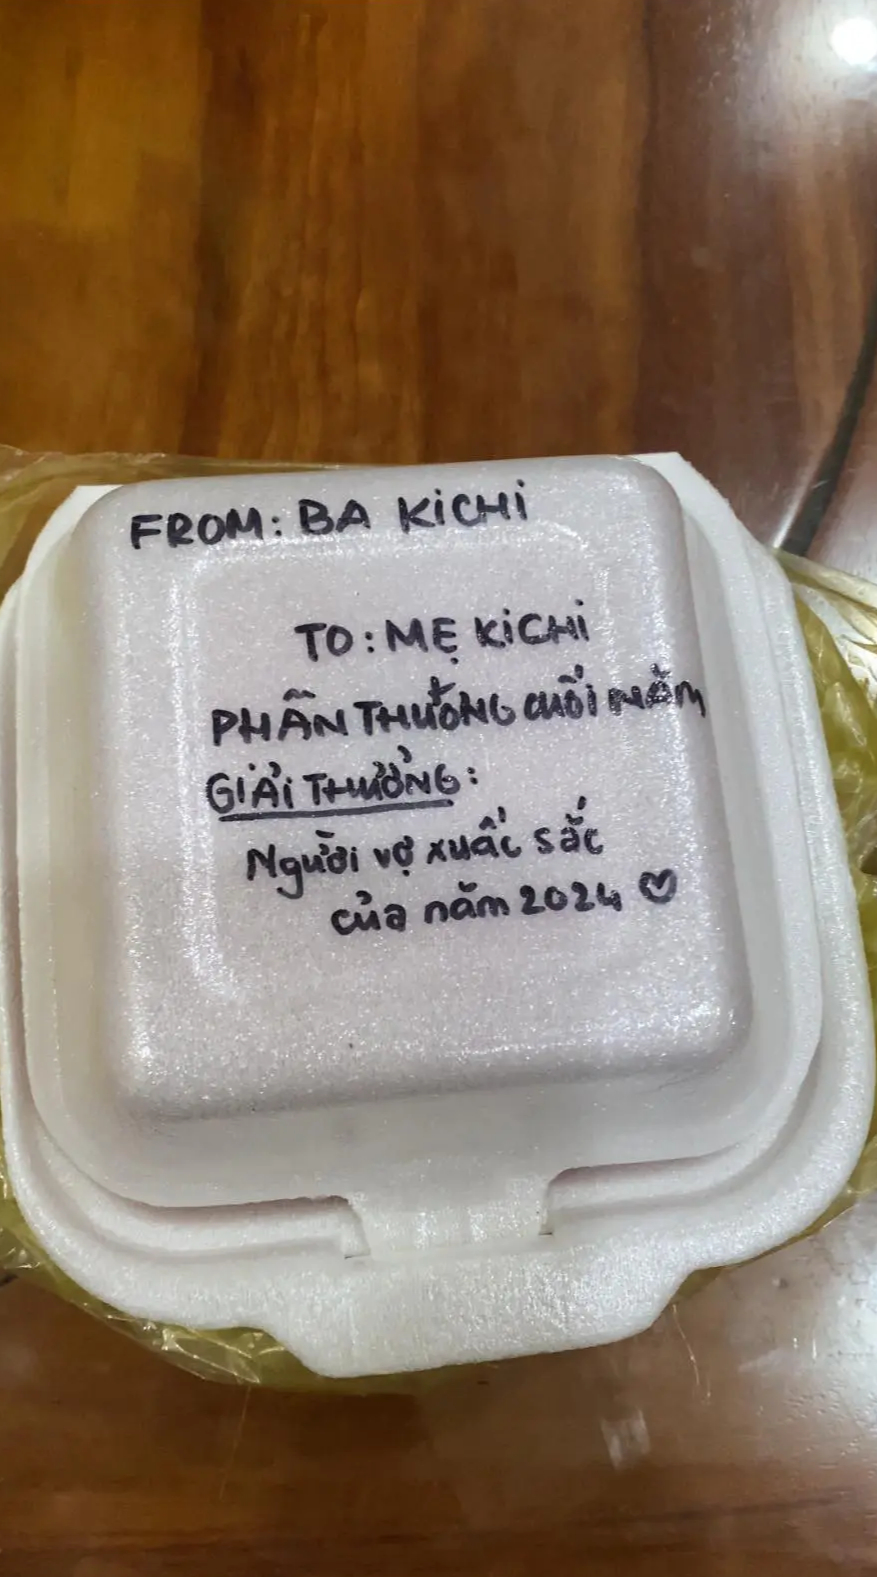 FROM: BA KiCHi
TO: MẸ KiCHi
PHẦN THƯỞNG CUỐI NĂM
GIẢI THƯỞNG:
Người vợ xuất sắc
của năm 2024 ♡